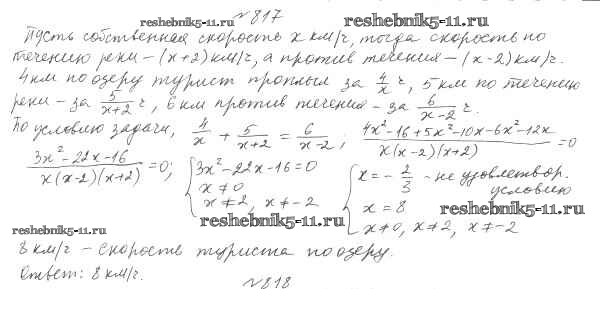 №817
reshebnik5-11.ru reshebnik5-11.ru
Пусть собственная скорость x км/ч, тогда скорость по
течению реки – (x+2) км/ч, а против течения – (x-2) км/ч.
4 км по озеру турист проплыл за 4/x ч, 5 км по течению
реки – за 5/(x+2) ч, 6 км против течения – за 6/(x-2) ч.
По условию задачи, 4/x + 5/(x+2) = 6/(x-2); (4x²-16+5x²-10x-6x²-12x)/(x(x-2)(x+2)) =0
(3x²-22x-16)/(x(x-2)(x+2)) =0; { 3x²-22x-16=0 { x=-2/3 - не удовлетвор. условию
x≠0 x=8
x≠2, x≠-2 x≠0, x≠2, x≠-2
reshebnik5-11.ru reshebnik5-11.ru
reshebnik5-11.ru
8 км/ч – скорость туриста по озеру.
Ответ: 8 км/ч.
№818